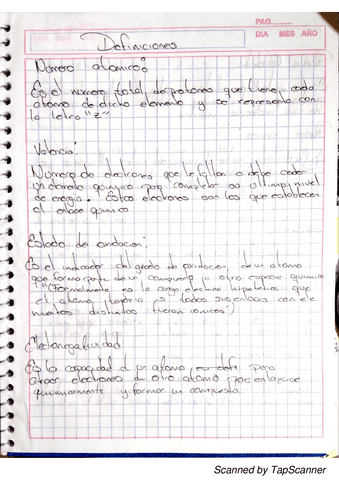 PAG.
DIA MES AÑO
Definiciones
Número atomico:
Es el numero total de protones que tiene cada
atomo de dicho elemento y se representa con
la letra "z"
Valencia:
Número de electrones que le faltan o debe ceder
un elemento quimico para completar su ultimo nivel
de energia. Estos electrones son los que establecen
el enlace quimico
Estado de oxidacion:
Es el indicador del grado de oxidacion de un atomo
que forma parte de un compuesto u otra especie quimica
Formalmente es la carga electrica hipotetica que
el atomo tendria si todos sus enlaces con ele
mentos distintos fueran ionicos
Electronegatividad
Es la capacidad de un atomo para
atraer electrones de otro atomo para enlazarse
quimicamente y formar un compuesto
Scanned by TapScanner